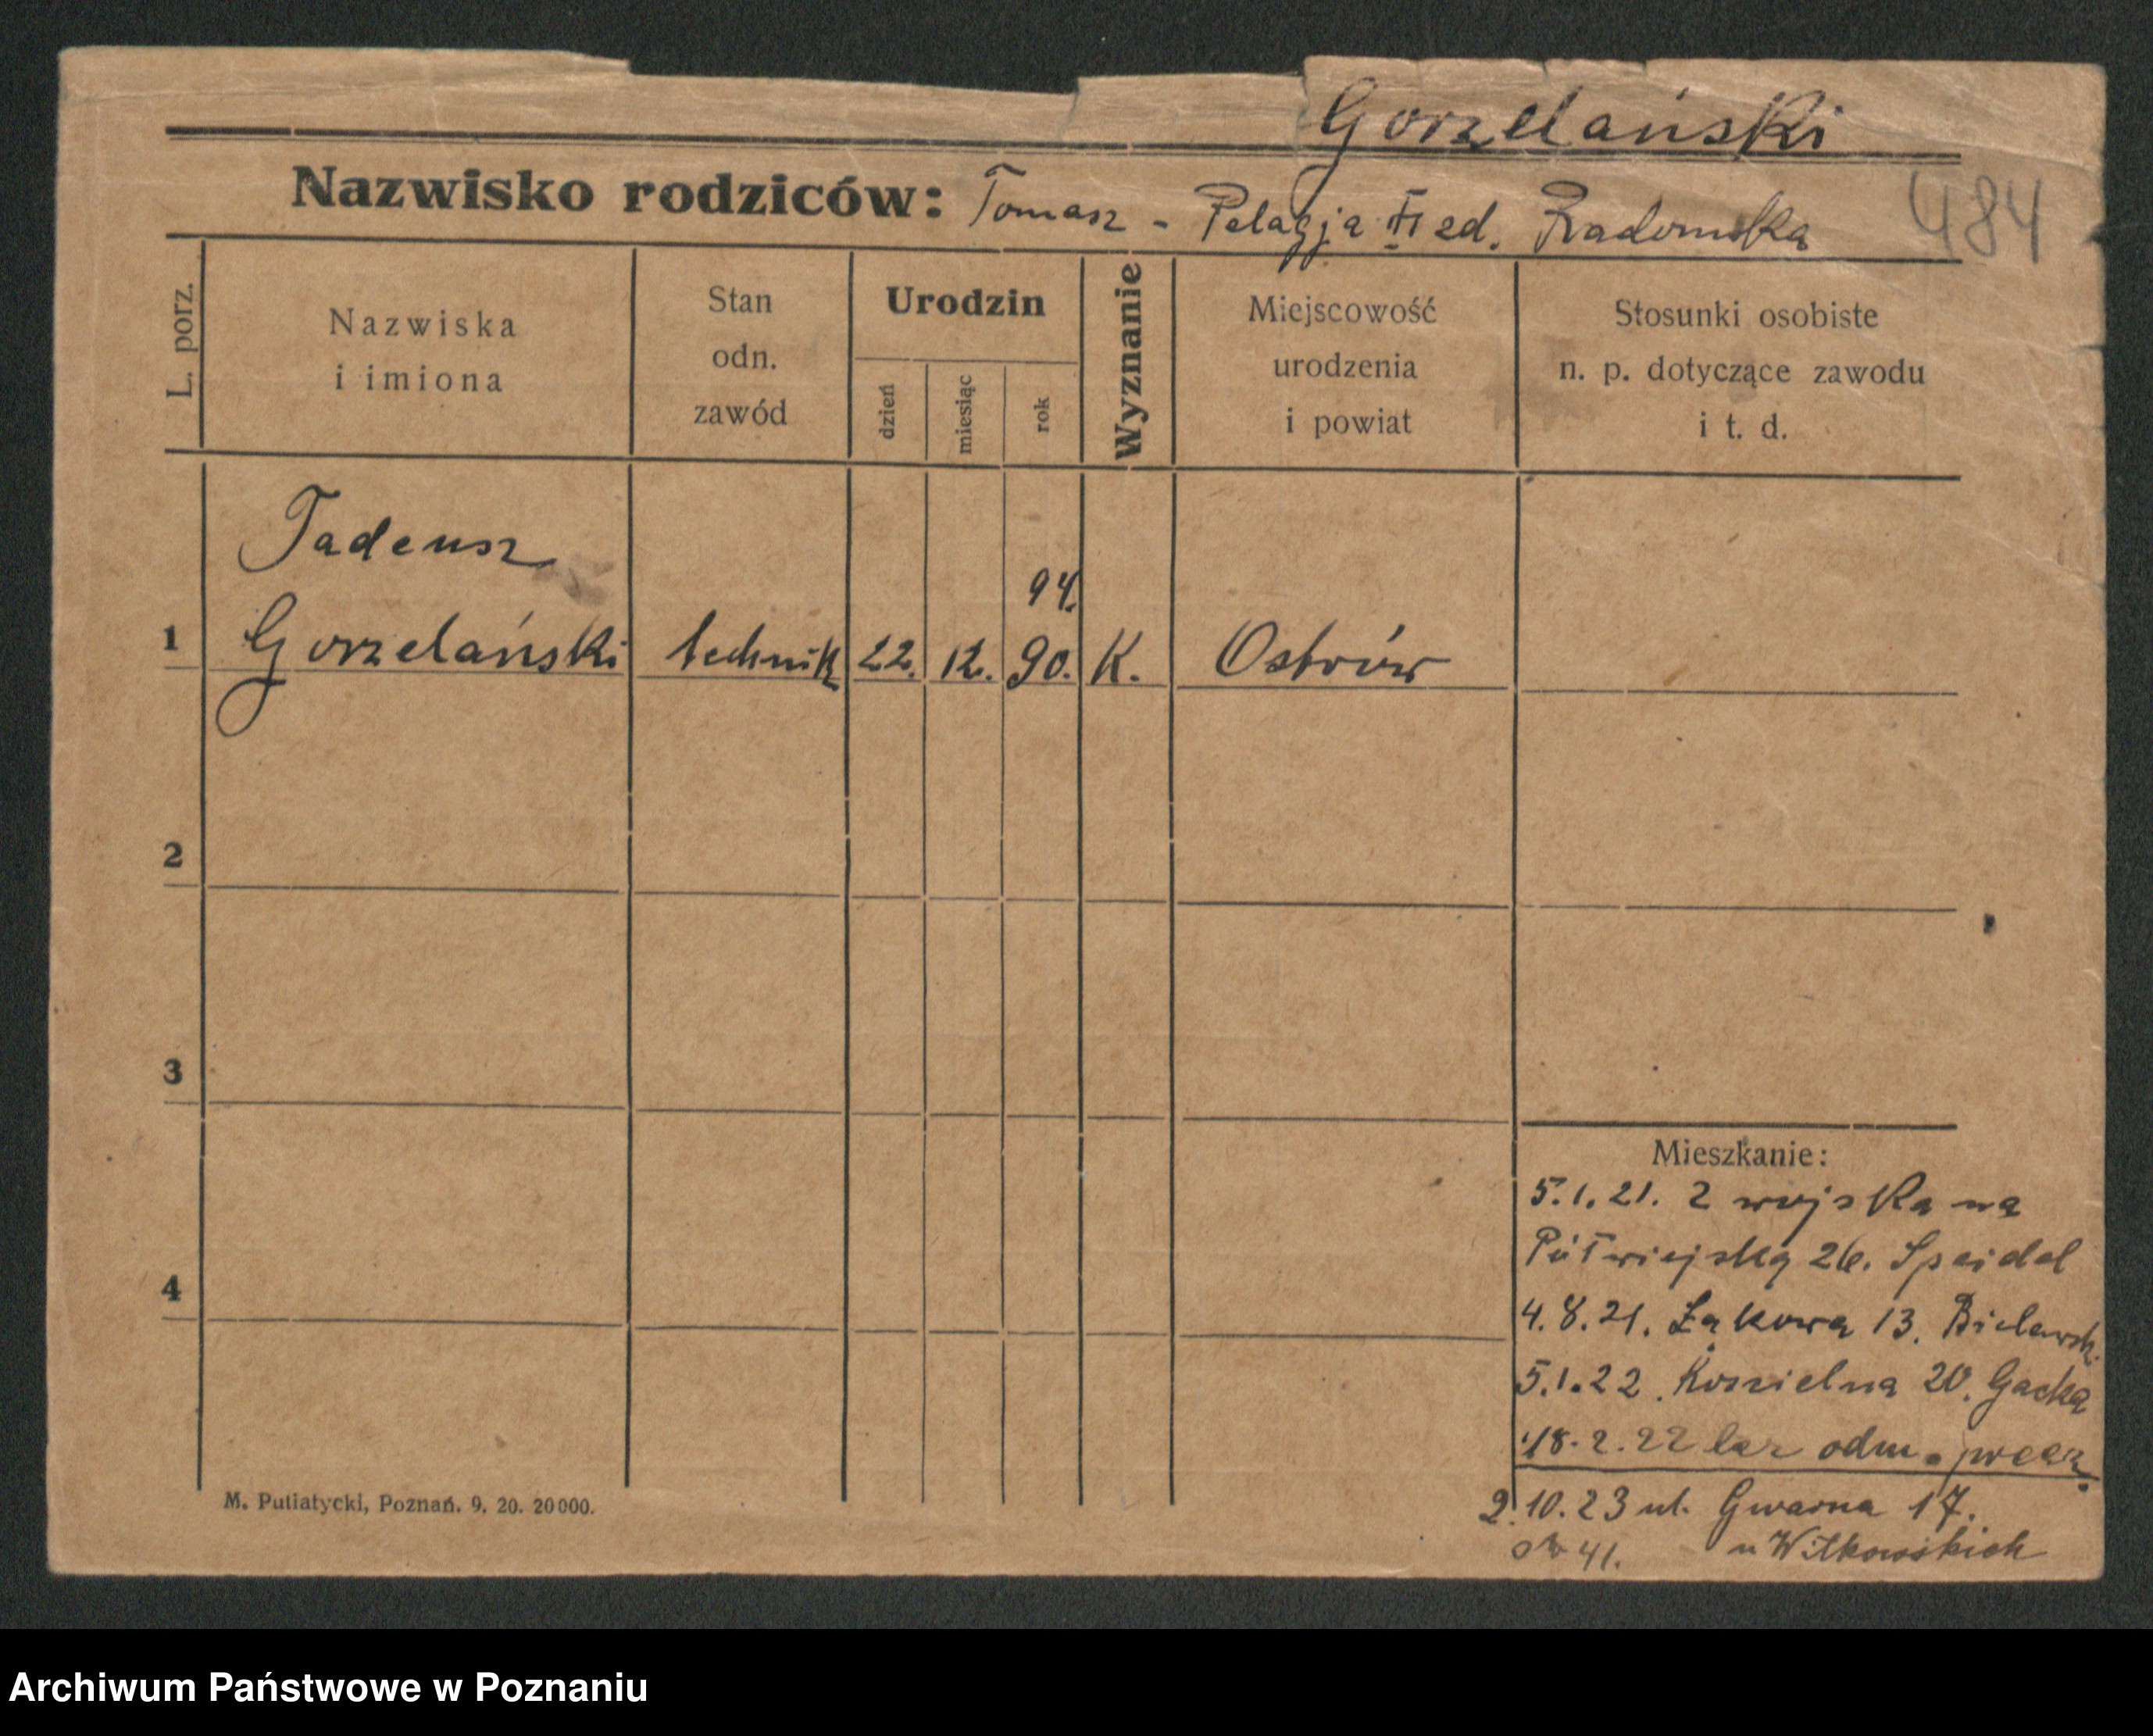 Gorzelański
Nazwisko rodziców: Tomasz - Pelagja zd. Radomska
484
L. porz.
Nazwiska
i imiona
Stan
odn.
zawód
Urodzin
dzień
miesiąc
rok
Wyznanie
Miejscowość
urodzenia
i powiat
Stosunki osobiste
n. p. dotyczące zawodu
i t. d.
Tadeusz
94.
1 Gorzelański technik 22. 12. 90. K. Ostrów
2
3
4
Mieszkanie:
5.1.21. z wojska na
Półwiejską 26. Speidel
4.8.21. Łąkowa 13. Bielawsk.
5.1.22. Kościelna 20. Gacka
18.2.22 odm.
2.10.23 ul. Gwarna 17.
41. u Witkowskich
M. Putiatycki, Poznań. 9. 20. 20000.
Archiwum Państwowe w Poznaniu